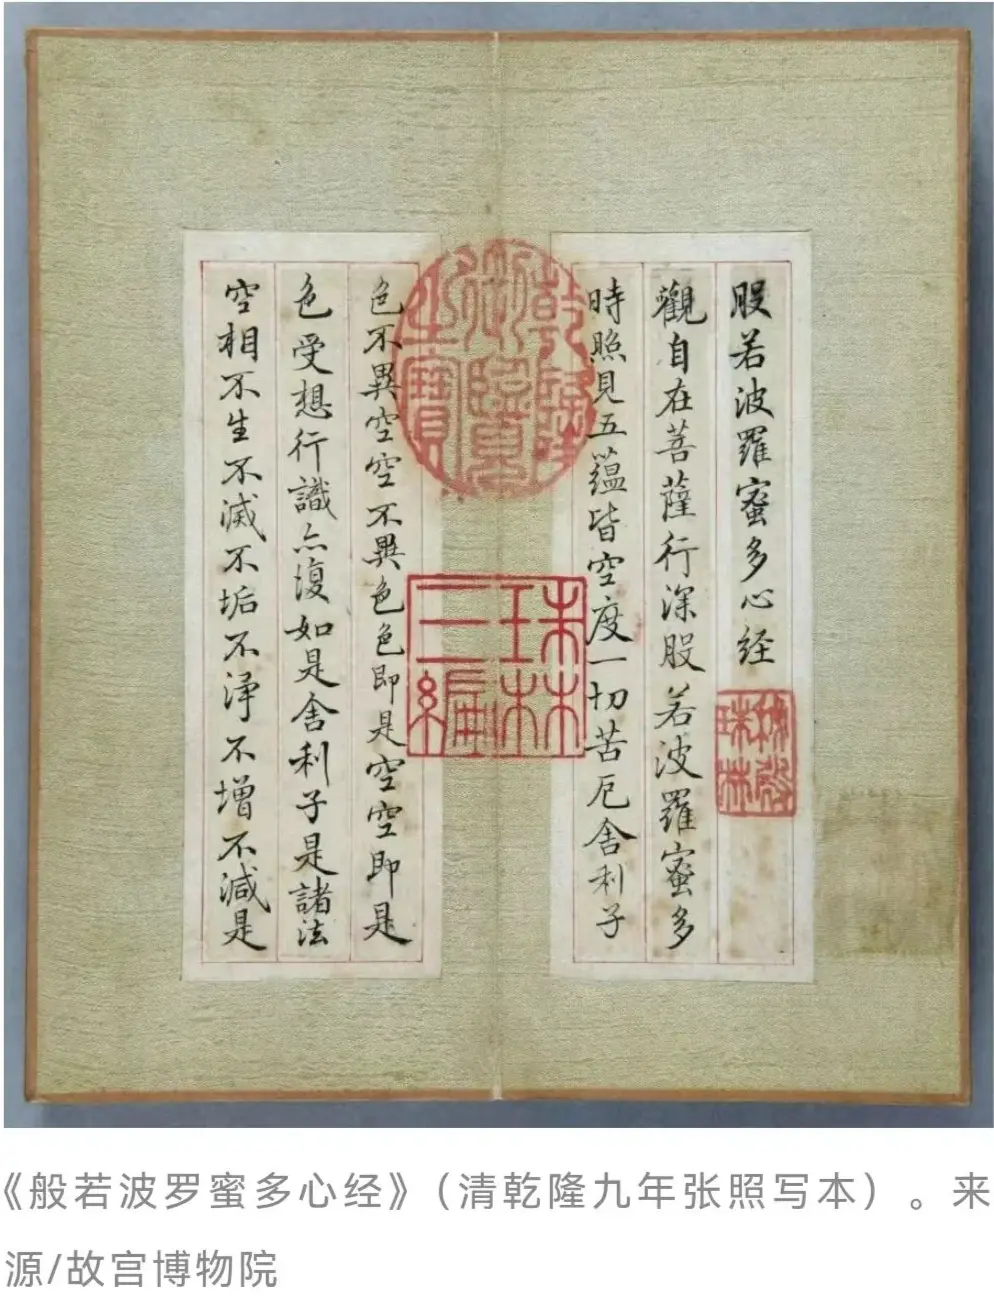 般若波羅蜜多心経
秘殿珠林
觀自在菩薩行深般若波羅蜜多
時照見五蘊皆空度一切苦厄舍利子
乾隆御覽之寶
珠林三編
色不異空空不異色色即是空空即是
色受想行識亦復如是舍利子是諸法
空相不生不滅不垢不淨不增不減是
《般若波罗蜜多心经》（清乾隆九年张照写本）。来
源/故宫博物院